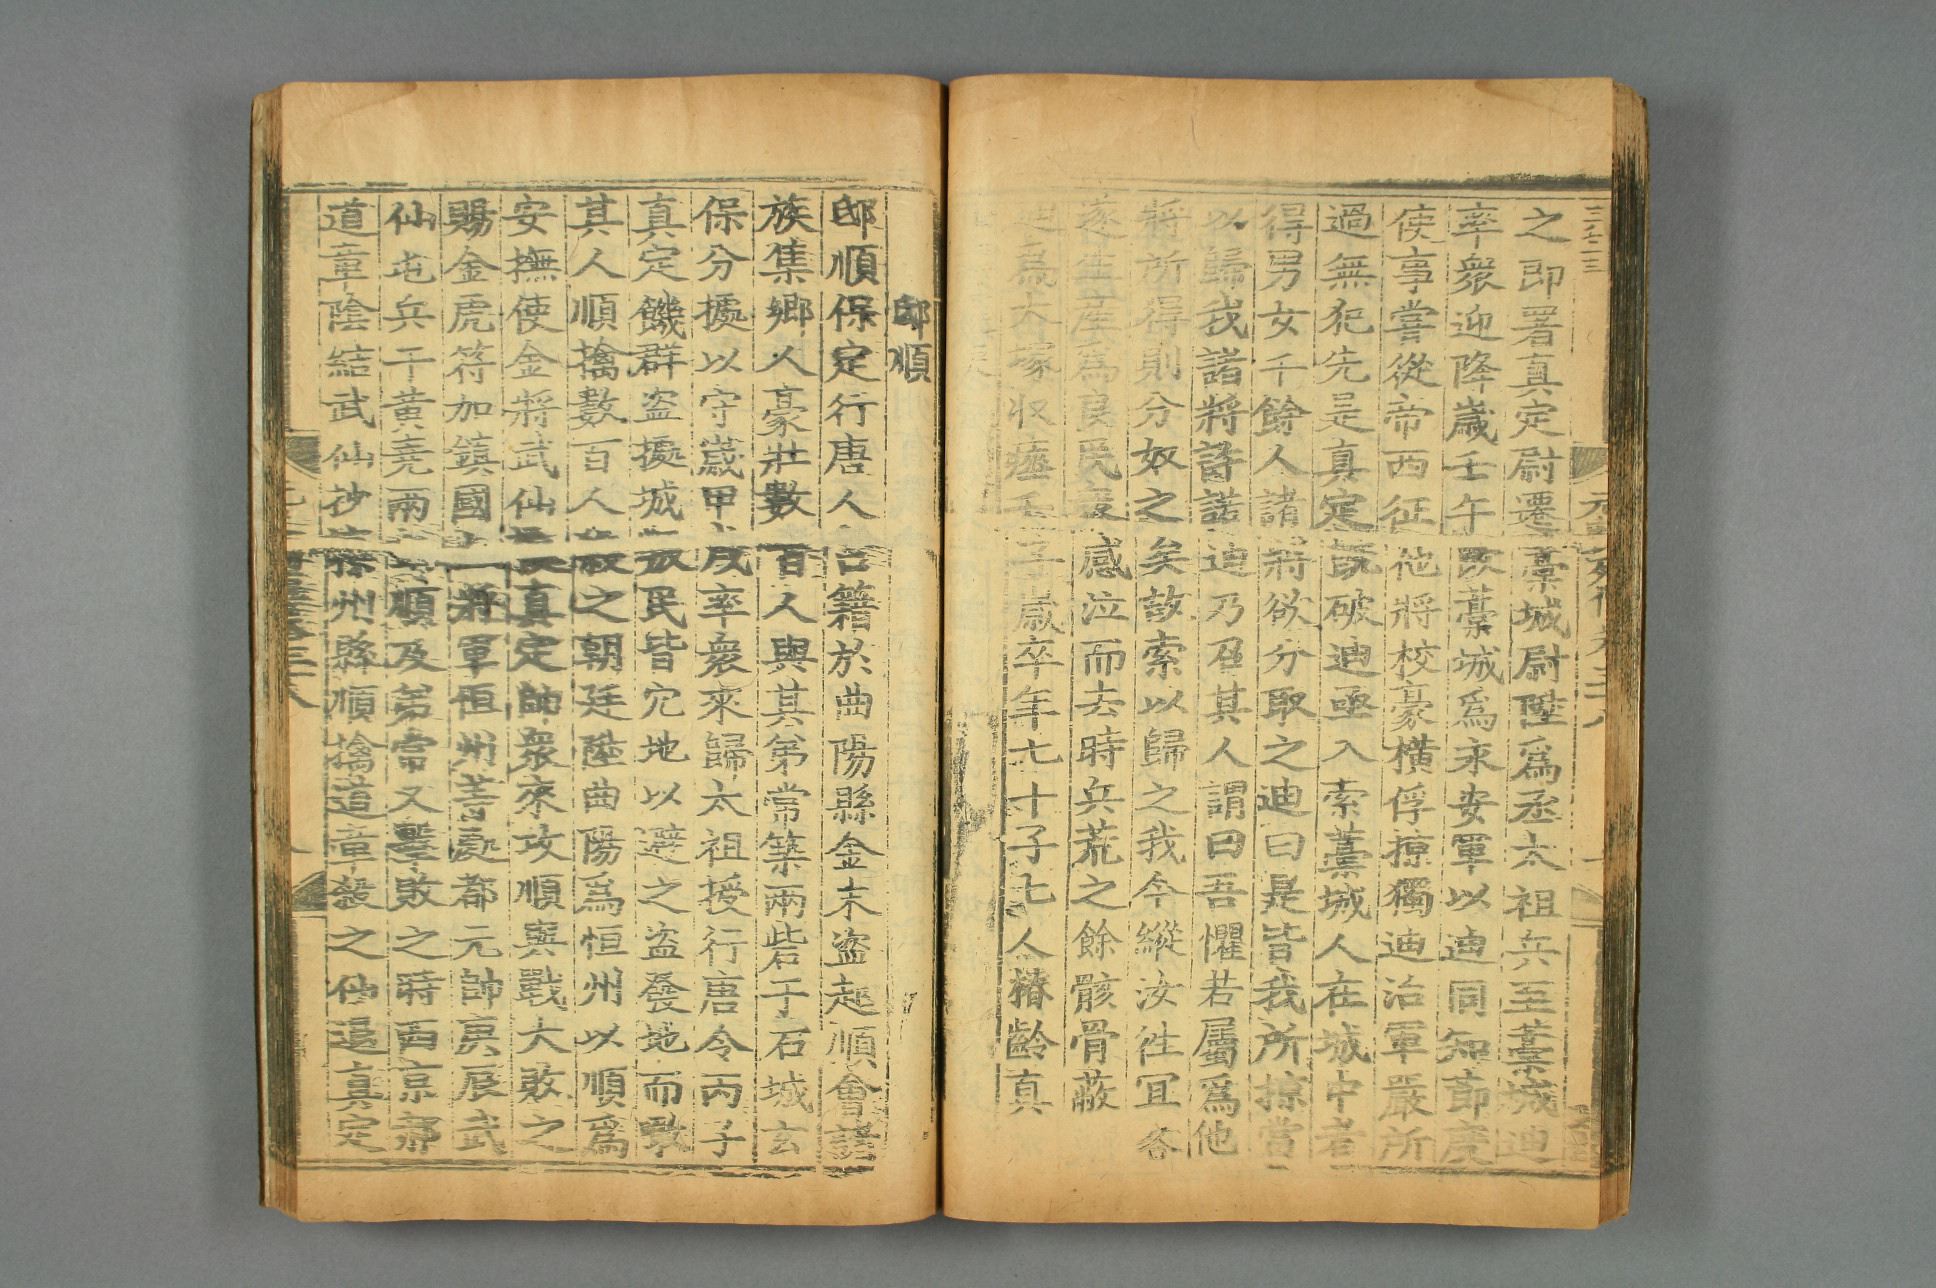 之即署真定尉遷藁城尉陞爲丞太祖兵至藁城迪
率衆迎降歲壬午改藁城爲永安軍以迪同知節度
使事嘗從帝西征他將校豪橫俘掠獨迪治軍嚴所
過無犯先是真定既破迪亟入索藁城人在城中者
得男女千餘人諸將欲分取之迪曰是皆我所掠當
以歸我諸將許諾迪乃召其人謂曰吾懼若屬爲他
將所得則分奴之矣故索以歸之我今縱汝往宜各
遂生產爲良民衆感泣而去時兵荒之餘骸骨蔽
野迪爲大塚收瘞壬子歲卒年七十子七人椿齡真
邸順
邸順保定行唐人占籍於曲陽縣金末盜起順會諸
族集鄉人豪壯數百人與其弟常築兩砦于石城玄
保分據以守歲甲戌率衆來歸太祖授行唐令丙子
真定饑群盜據城叛民皆穴地以避之盜發地而噉
其人順擒數百人殺之朝廷陞曲陽爲恒州以順爲
安撫使金將武仙據真定帥衆來攻順與戰大敗之
賜金虎符加鎮國上將軍恒州等處都元帥庚辰武
仙屯兵于黃堯兩山順及弟常又擊敗之時西京郝
道章陰結武仙抄掠州縣順擒道章殺之仙退真定